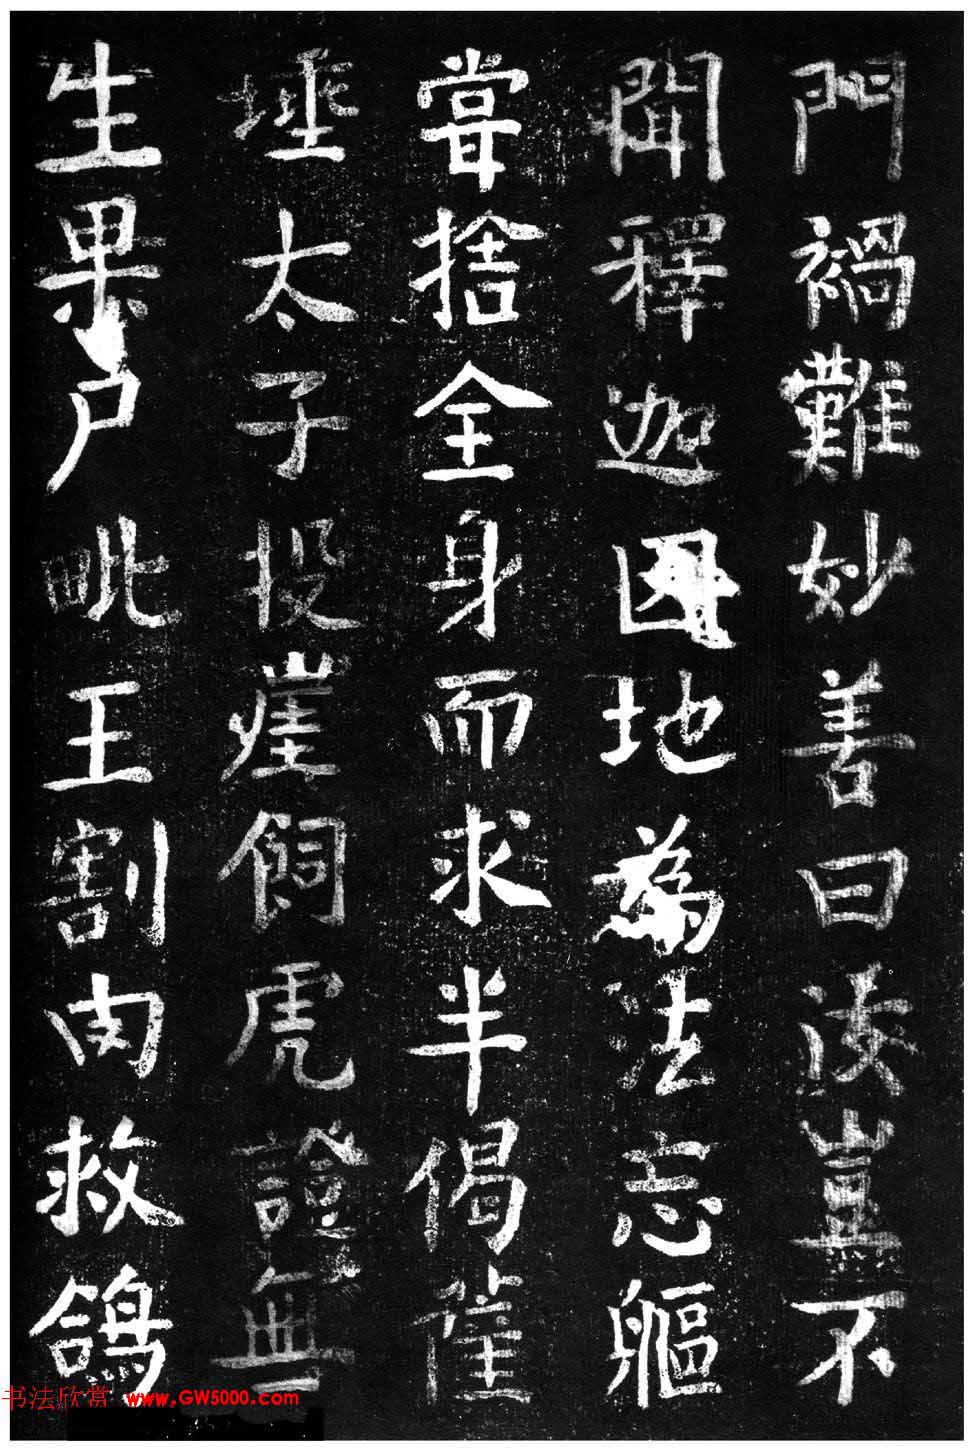 門禍難妙善曰汝豈不
聞釋迦因地為法忘軀
嘗捨全身而求半偈薩
埵太子投崖飼虎證無
生果尸毗王割肉救鴿
书法欣赏 www.GW5000.com